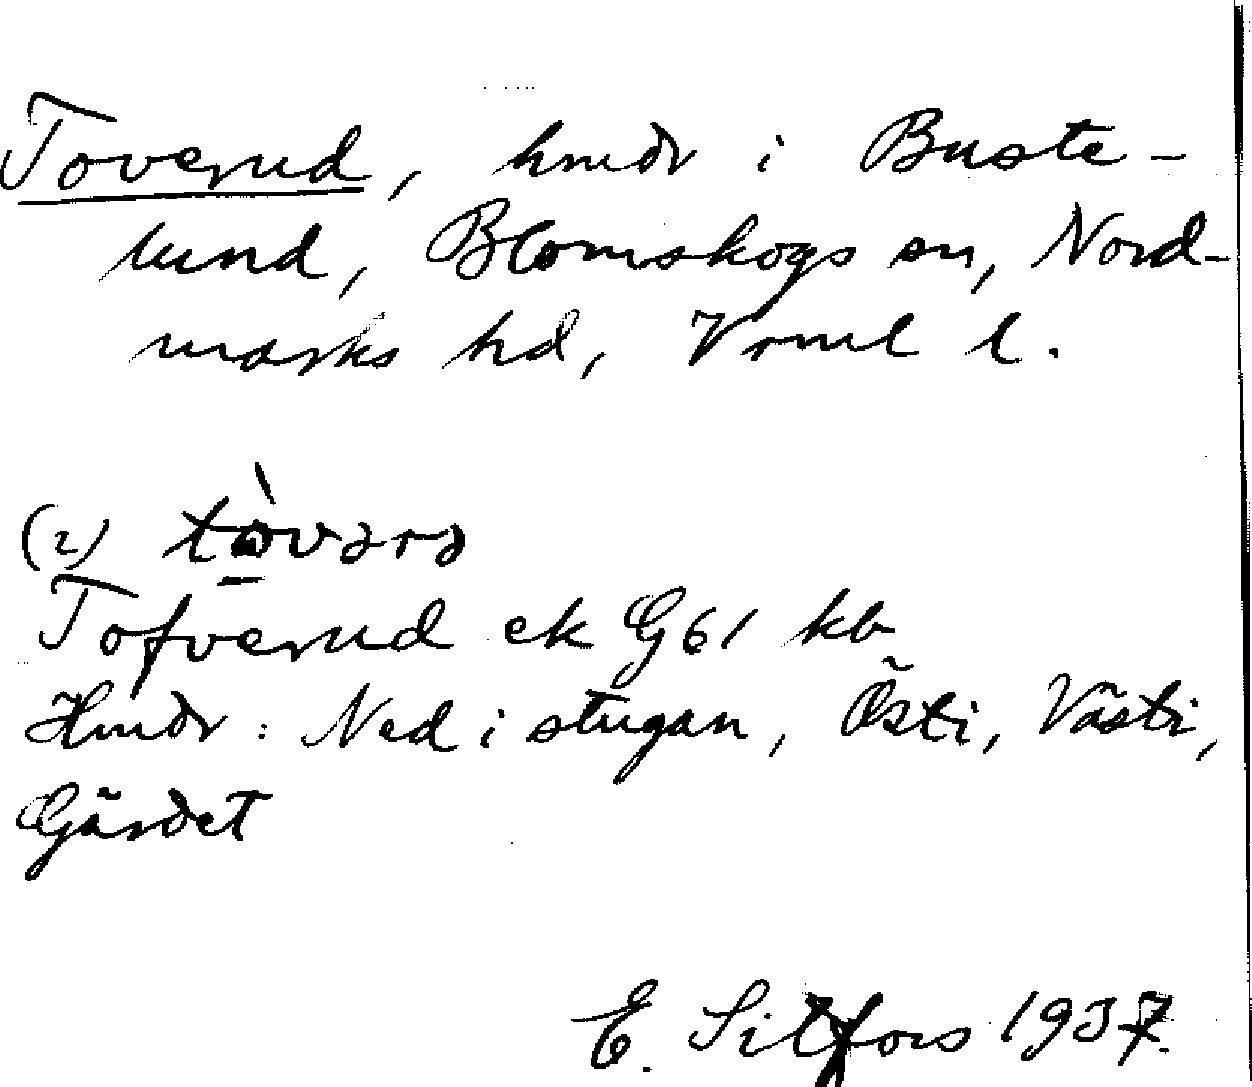 Toverud, hmdr i Buste-
lund, Blomskogs sn, Nord-
marks hd, Vrml l.
(2) tòvərə
Tofverud ek G61 kb
Hmdr: Ned i stugan, Östi, Västi,
Gärdet
E. Sitfors 1937.